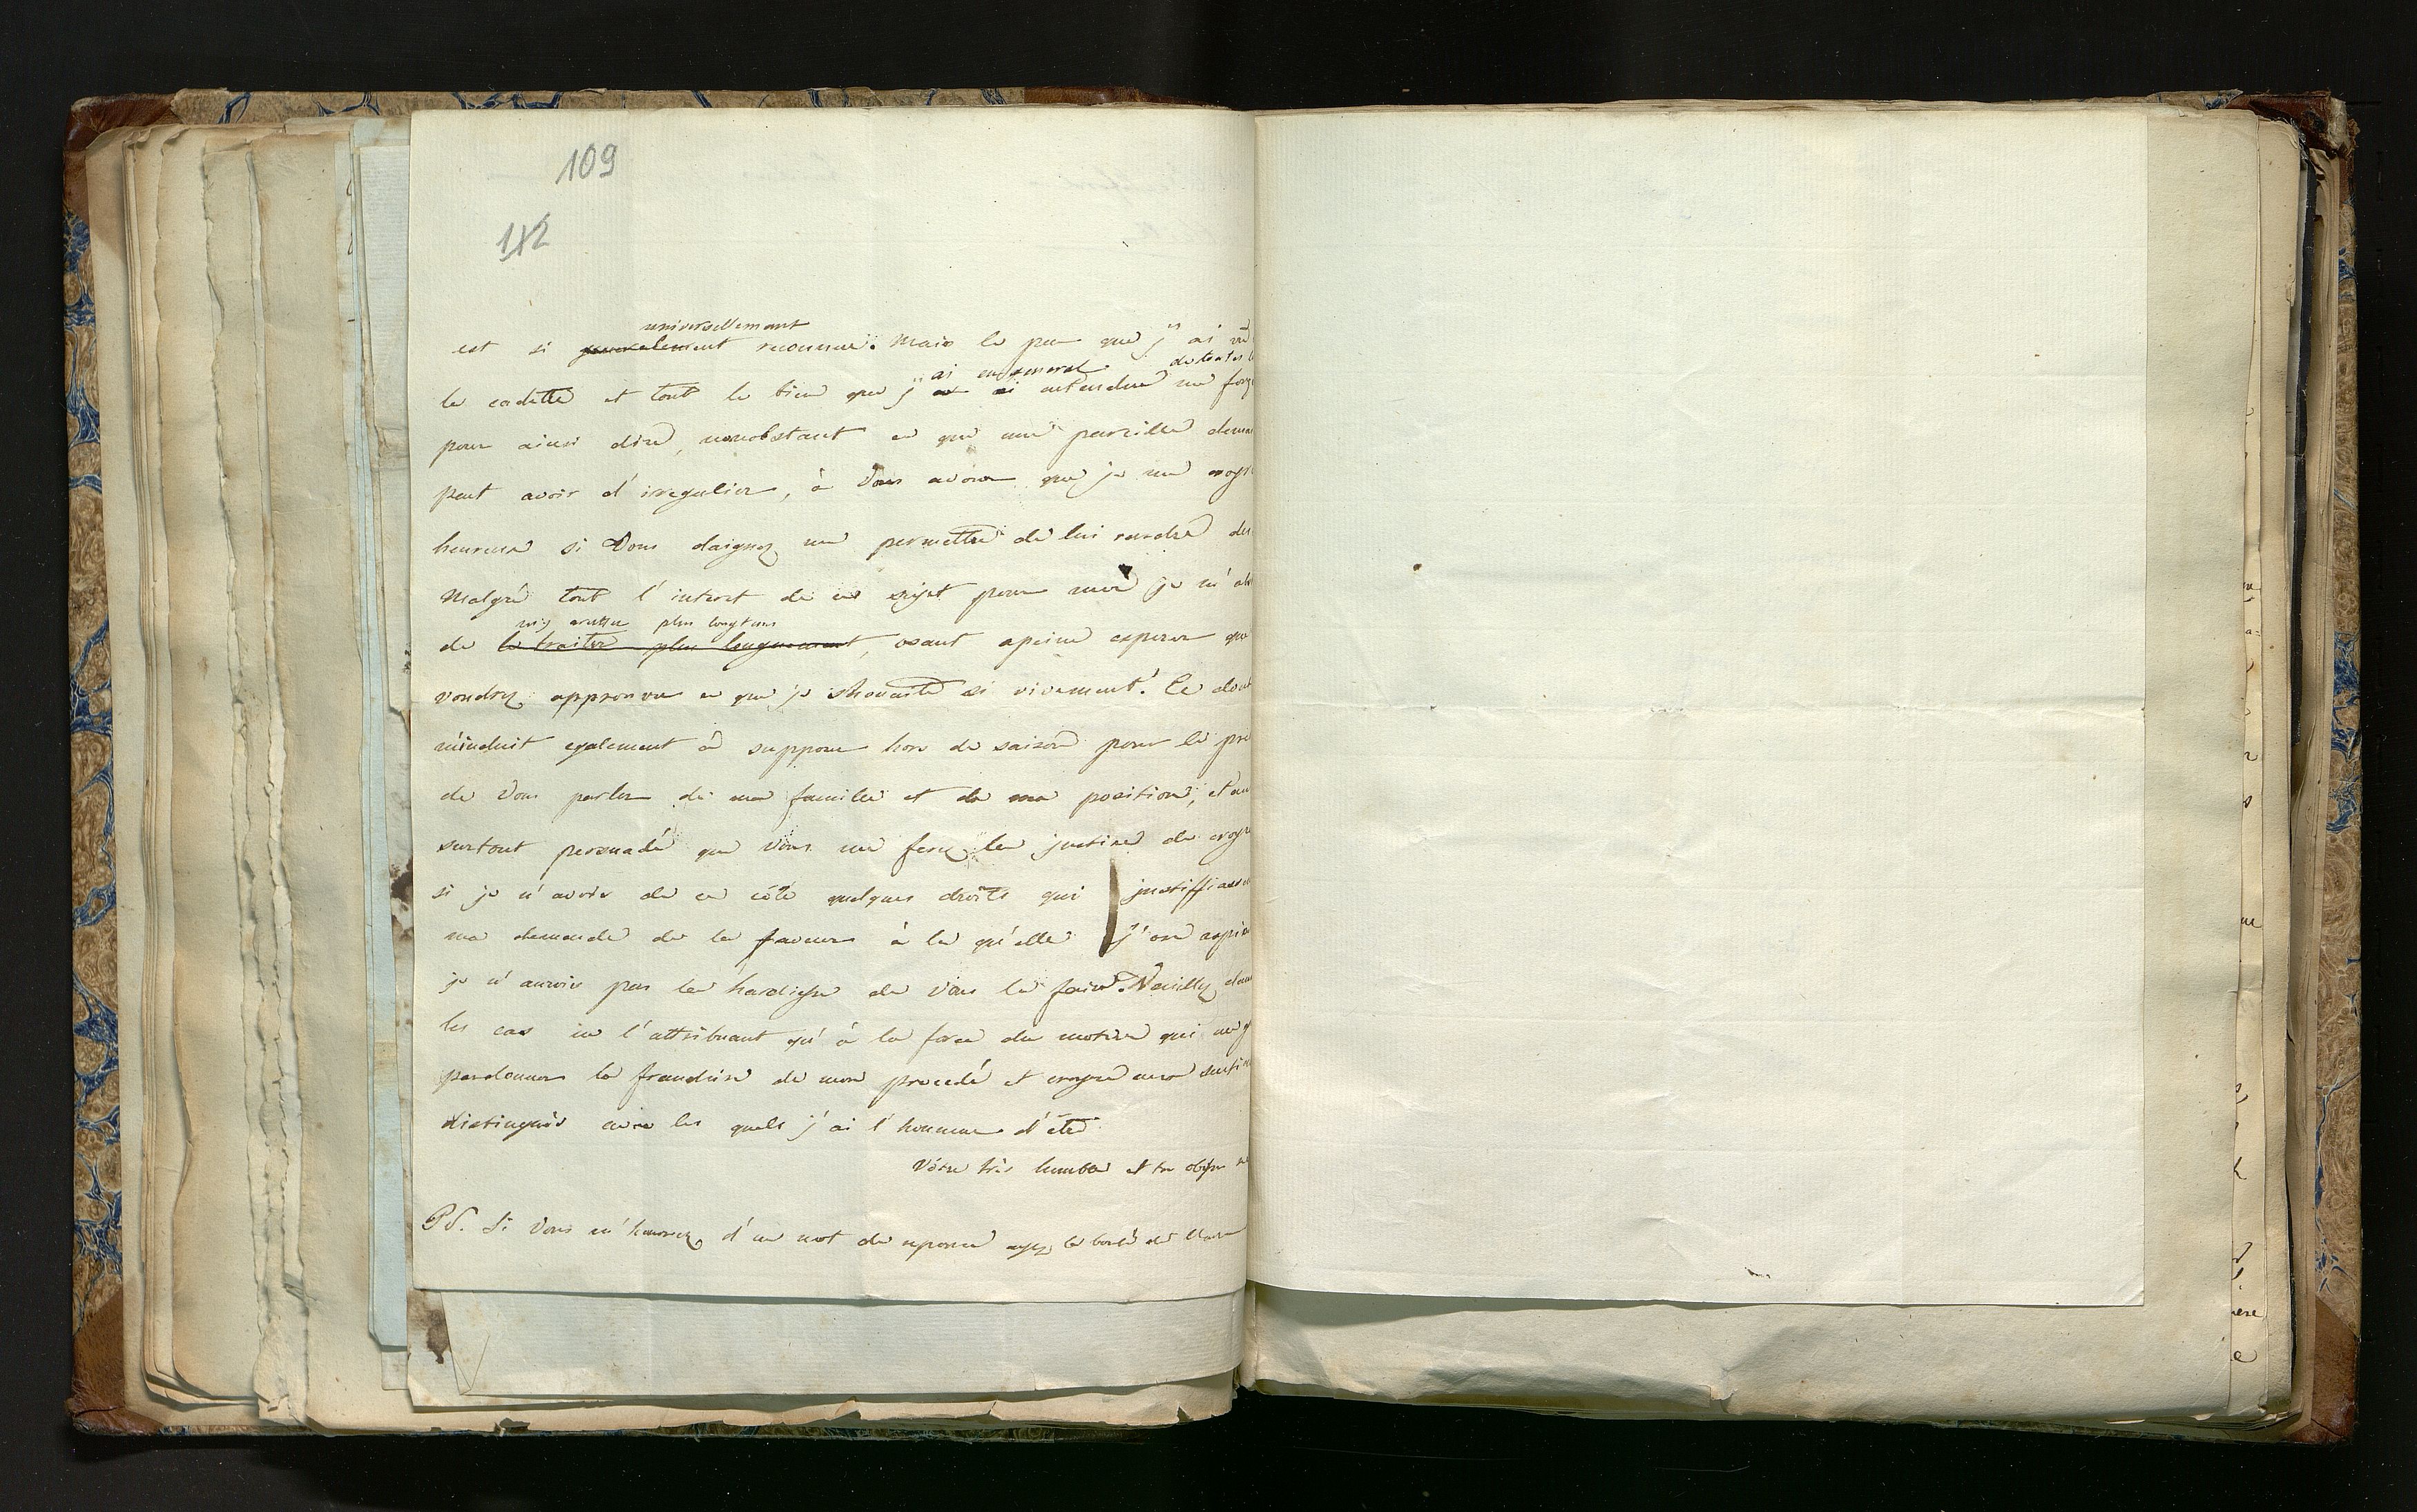 109
112
universellement
est si generalement reconnue. Mais le peu que j'ai vu
ai en general de toutes
la cadette et tout le bien que j'en ai entendu me force
pour ainsi dire, nonobstant ce que une pareille dema
peut avoir d'iregulier, à Vous avouer que je me croy
heureux si Vous daignez me permettre de lui rendre des
Malgré tout l'intret de ce sujet pour moi je m'abs
m'y arreter plus longtems
de le traiter plus longuement, osant apeine esperer que
voudrez approuver ce que je shouaite si vivement. Ce dou
m'induit egalement à supposer hors de saison pour le pre
de Vous parler de ma famille et de ma position, etan
surtout persuadé que Vous me ferez la justice de croyre
si je n'avois de ce côté quelques droits qui justiffiasse
ma demande de la faveur à la qu'elle j'ose aspire
je n'aurois pas la hardiesse de Vous la faire. Veuillez dans
les cas ne l'attribuant qu'à la force du motive qui me
pardonner la franchise de mon procedé et croyre aux senti
distingués avec les quels j'ai l'honneur d'être
Vôtre très humble et tr obeiss
PS. Si Vous m'honorez d'un mot de reponse ayez la bonté de